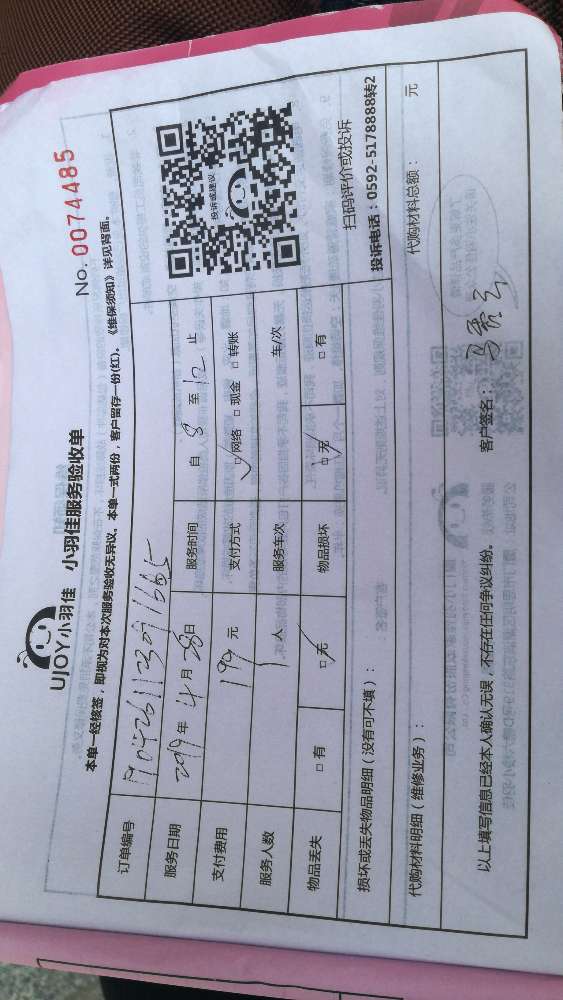 UJOY小羽佳 小羽佳服务验收单
No. 0074485
本单一经核签，即视为对本次服务验收无异议。本单一式两份，客户留存一份(红)。《维保须知》详见背面。
订单编号
服务日期 年 4 月 28 日 服务时间 自 8 至 12 止
支付费用 199 元 支付方式 □网络 □现金 □转账
服务人数 1 人 服务车次 车/次
物品丢失 □有 □无 物品损坏 □无 □有
投诉或建议
扫码评价或投诉
投诉电话：0592-5178888转2
损坏或丢失物品明细（没有可不填）：
代购材料明细（维修业务）： 代购材料总额： 元
以上填写信息已经本人确认无误，不存在任何争议纠纷。 客户签名：